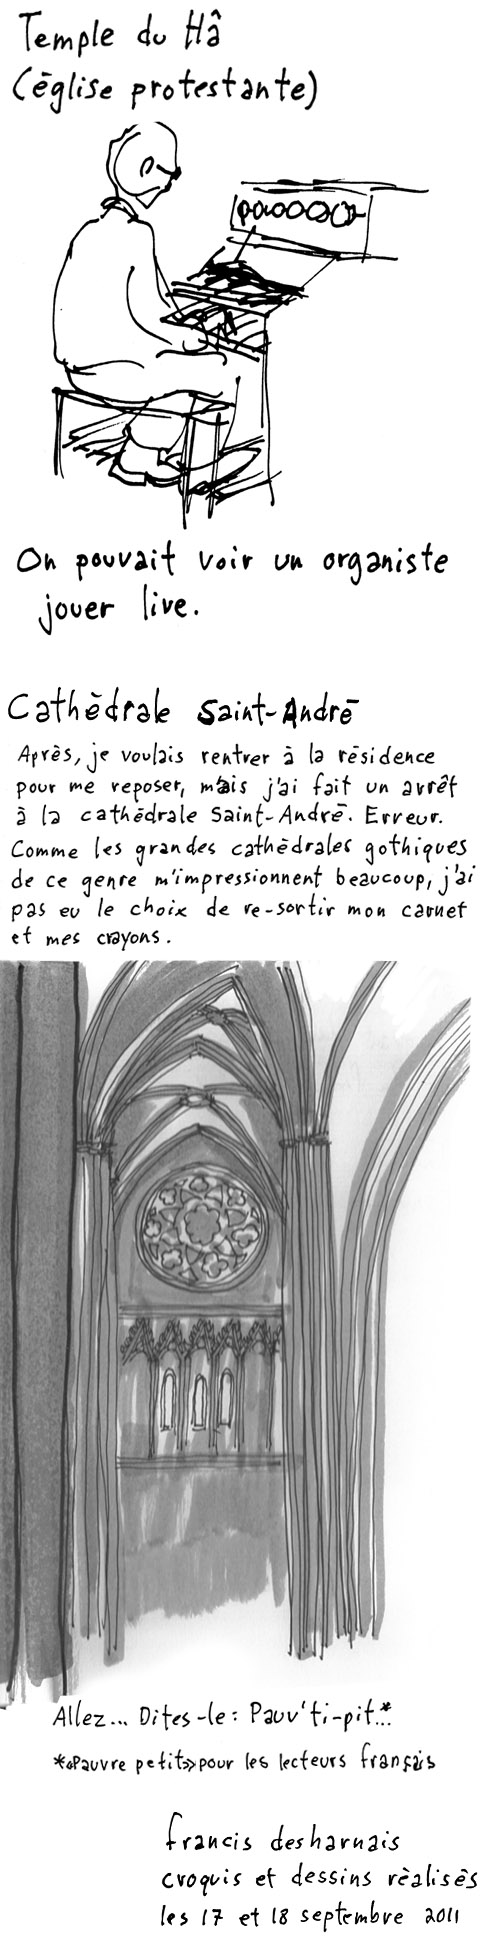 Temple du Hâ
(église protestante)
On pouvait voir un organiste
jouer live.
Cathédrale Saint-André
Après, je voulais rentrer à la résidence
pour me reposer, mais j'ai fait un arrêt
à la cathédrale Saint-André. Erreur.
Comme les grandes cathédrales gothiques
de ce genre m'impressionnent beaucoup, j'ai
pas eu le choix de re-sortir mon carnet
et mes crayons.
Allez... Dites-le : Pauv'ti-pit...*
*«Pauvre petit» pour les lecteurs français
francis desharnais
croquis et dessins réalisés
les 17 et 18 septembre 2011